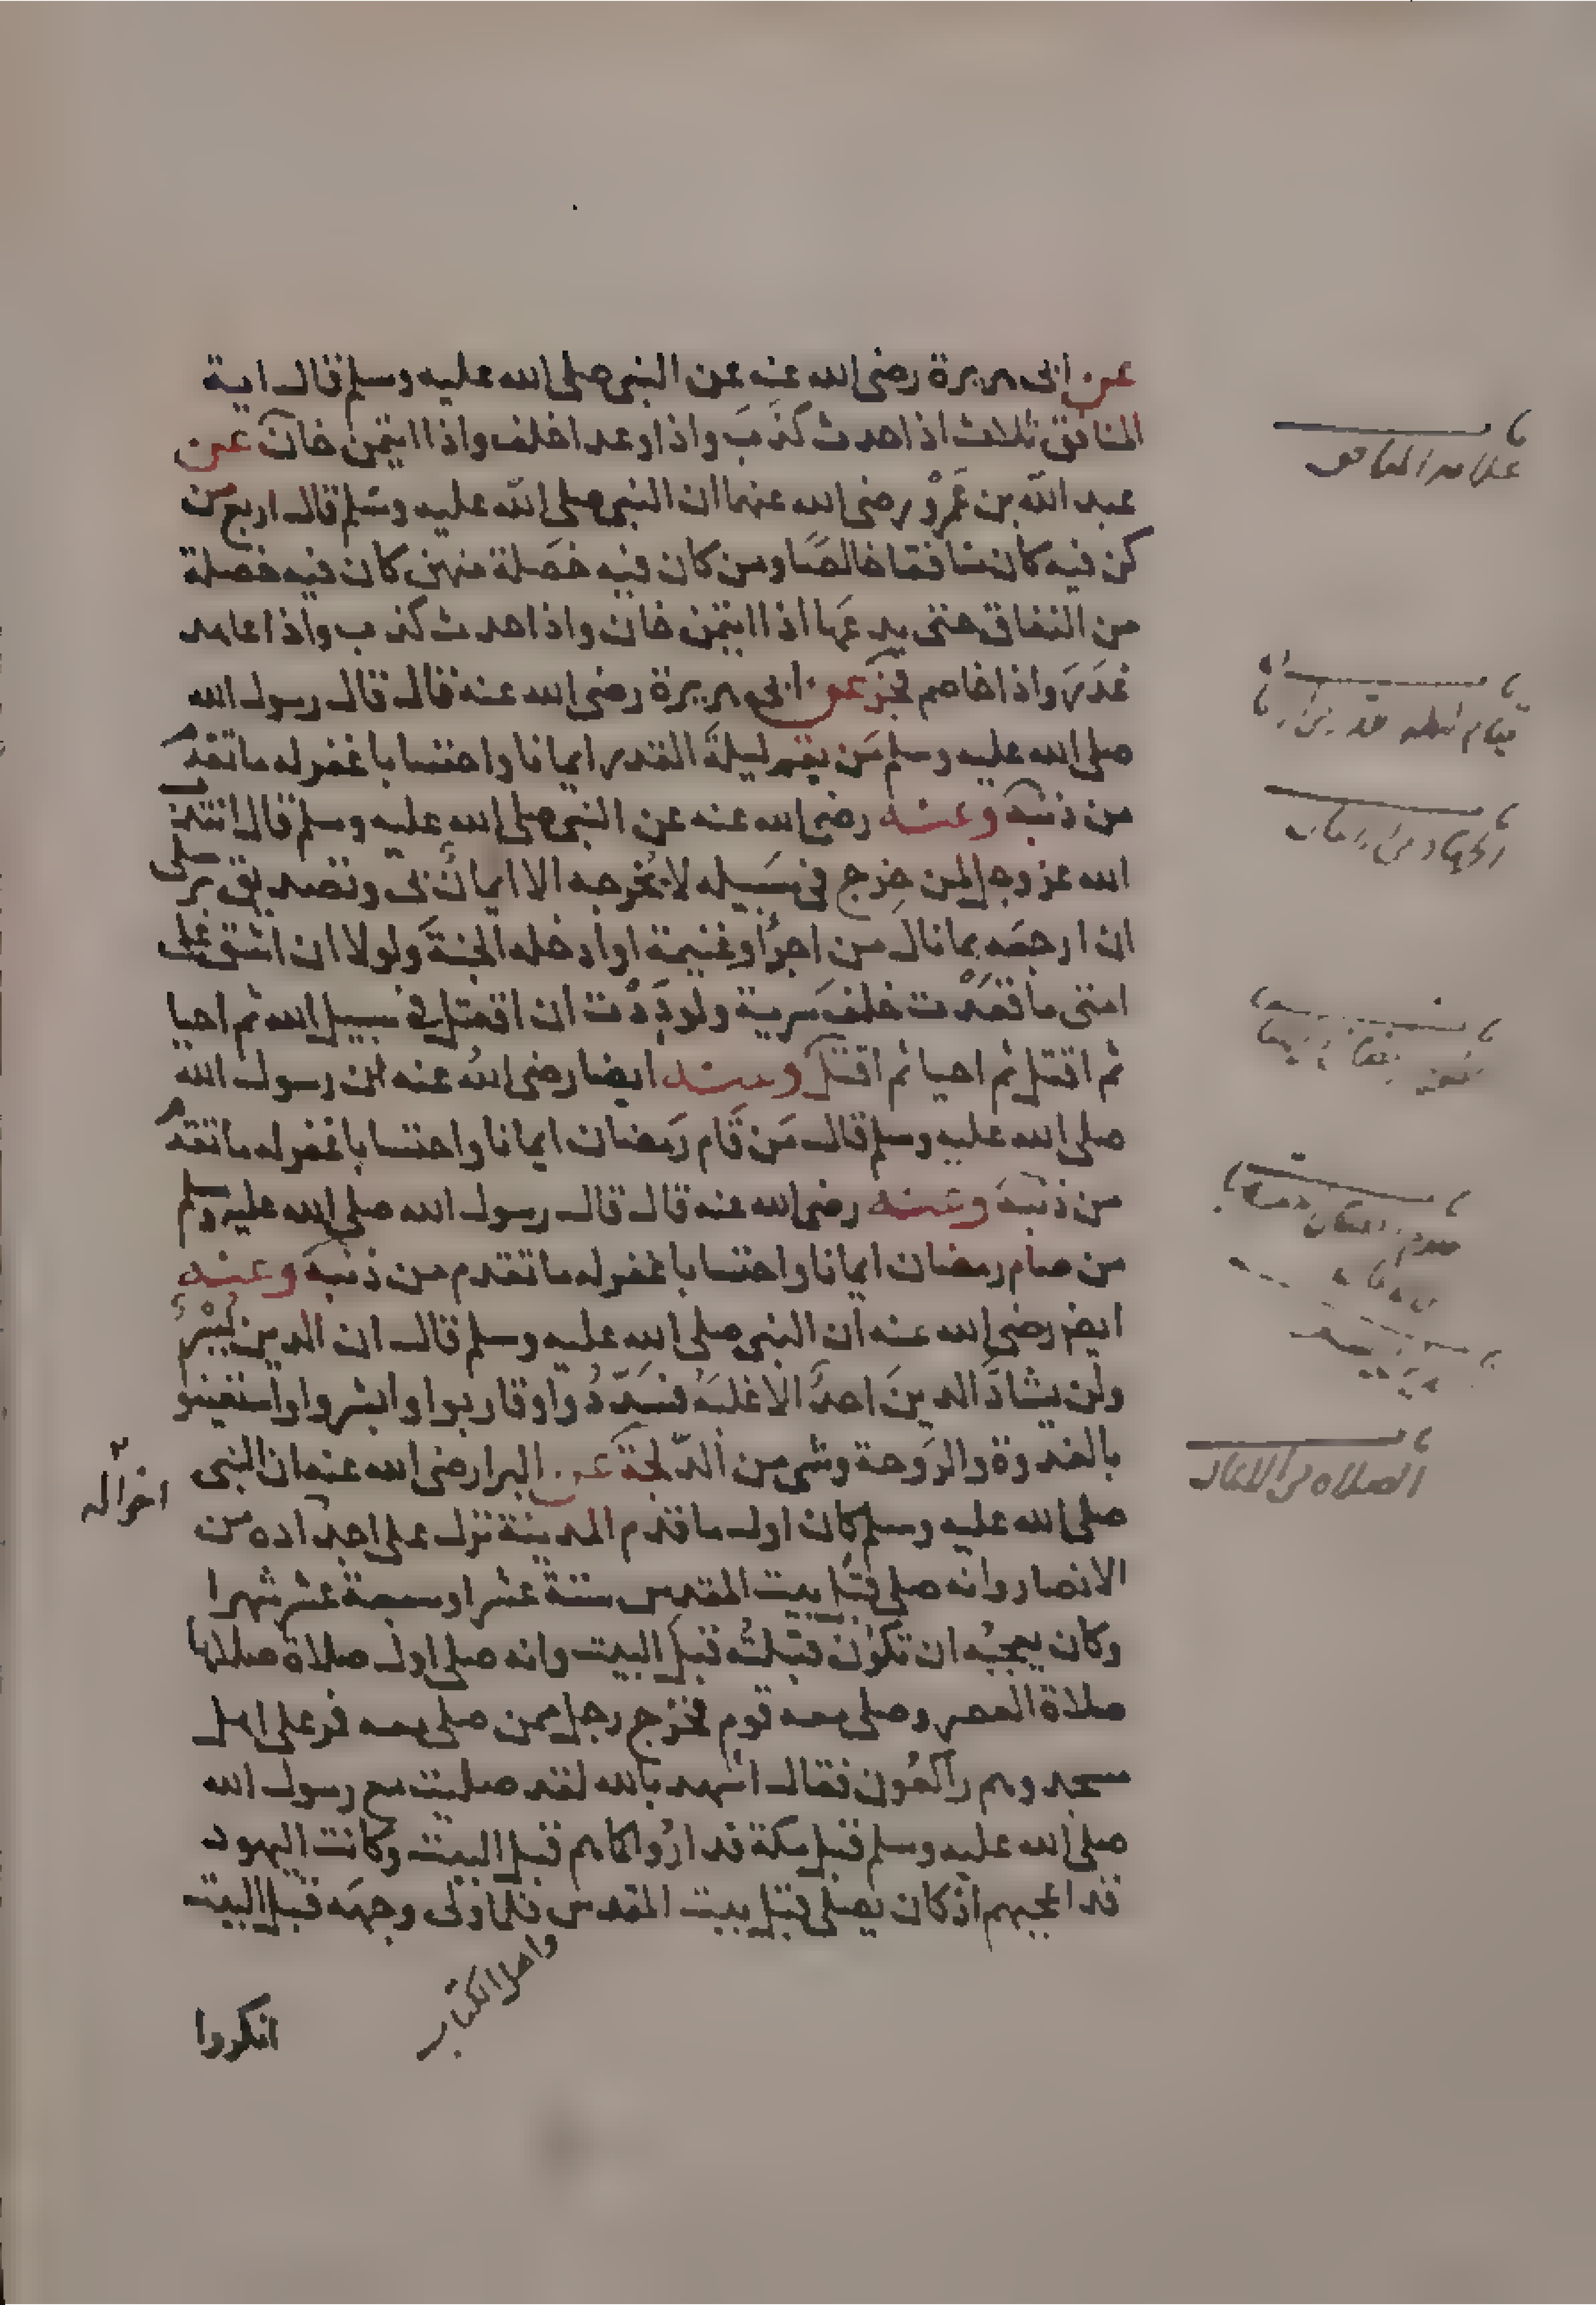 عن ابى هريرة رضى الله عنه عن النبى صلى الله عليه وسلم قال اية
المنافق ثلاث اذا حدث كذب واذا وعد اخلف واذا ايتمن خان عن
عبد الله بن عمرو رضى الله عنهما ان النبى صلى الله عليه وسلم قال اربع من
كن فيه كان منافقا خالصا ومن كان فيه خصلة منهن كان فيه خصلة
من النفاق حتى يدعها اذا ايتمن خان واذا حدث كذب واذا عاهد
غدر واذا خاصم فجر عن ابى هريرة رضى الله عنه قال قال رسول الله
صلى الله عليه وسلم من يقم ليلة القدر ايمانا واحتسابا غفر له ما تقدم
من ذنبه وعنه رضى الله عنه عن النبى صلى الله عليه وسلم قال انتدب
الله عز وجل لمن خرج فى سبيله لا يخرجه الا ايمان بى وتصديق برسلى
ان ارجعه بما نال من اجر او غنيمة او ادخله الجنة ولولا ان اشق على
امتى ما قعدت خلف سرية ولوددت ان اقتل فى سبيل الله ثم احيا
ثم اقتل ثم احيا ثم اقتل وعنه ايضا رضى الله عنه ان رسول الله
صلى الله عليه وسلم قال من قام رمضان ايمانا واحتسابا غفر له ما تقدم
من ذنبه وعنه رضى الله عنه قال قال رسول الله صلى الله عليه وسلم
من صام رمضان ايمانا واحتسابا غفر له ما تقدم من ذنبه وعنه
ايضا رضى الله عنه ان النبى صلى الله عليه وسلم قال ان الدين يسر
ولن يشاد الدين احد الا غلبه فسددوا وقاربوا وابشروا واستعينو
بالغدوة والروحة وشى من الدلجة عن البرا رضى الله عنه ان النبى
صلى الله عليه وسلم كان اول ما قدم المدينة نزل على اجداده من
الانصار وانه صلى قبل بيت المقدس ستة عشر او سبعة عشر شهرا
وكان يعجبه ان تكون قبلته قبل البيت وانه صلى اول صلاة صلاها
صلاة العصر وصلى معه قوم فخرج رجل ممن صلى معه فمر على اهل
مسجد وهم راكعون فقال اشهد بالله لقد صليت مع رسول الله
صلى الله عليه وسلم قبل مكة فداروا كما هم قبل البيت وكانت اليهود
قد اعجبهم اذ كان يصلى قبل بيت المقدس فلما ولى وجهه قبل البيت
واهل الكتاب
انكروا
علامة المنافق
الجهاد من الايمان
الصلاة من الايمان